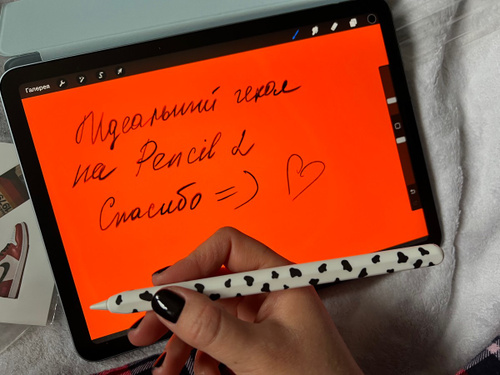 Галерея
Идеальный чехол
на Pencil 2
Спасибо =)